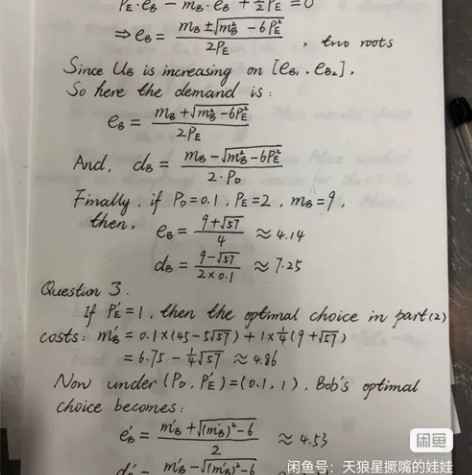 P_E·e_B − m_B·e_B + 3/2 P_E² = 0
⇒ e_B = (m_B ± √(m_B² − 6P_E²)) / 2P_E , two roots
Since U_B is increasing on [e_B1, e_B2],
So here the demand is:
e_B = (m_B + √(m_B² − 6P_E²)) / 2P_E
And, d_B = (m_B − √(m_B² − 6P_E²)) / 2·P_D
Finally, if P_D = 0.1, P_E = 2, m_B = 9,
then, e_B = (9 + √57) / 4 ≈ 4.14
d_B = (9 − √57) / (2×0.1) ≈ 7.25
Question 3.
If P'_E = 1, then the optimal choice in part(2)
costs: m'_B = 0.1×(45 − 5√57) + 1×1/4(9 + √57)
= 6.75 − 1/4√57 ≈ 4.86
Now under (P_D, P'_E) = (0.1, 1), Bob's optimal
choice becomes:
e'_B = (m'_B + √((m'_B)² − 6)) / 2 ≈ 4.53
m'_B − √((m'_B)² − 6
闲鱼
闲鱼号：天狼星撅嘴的娃娃